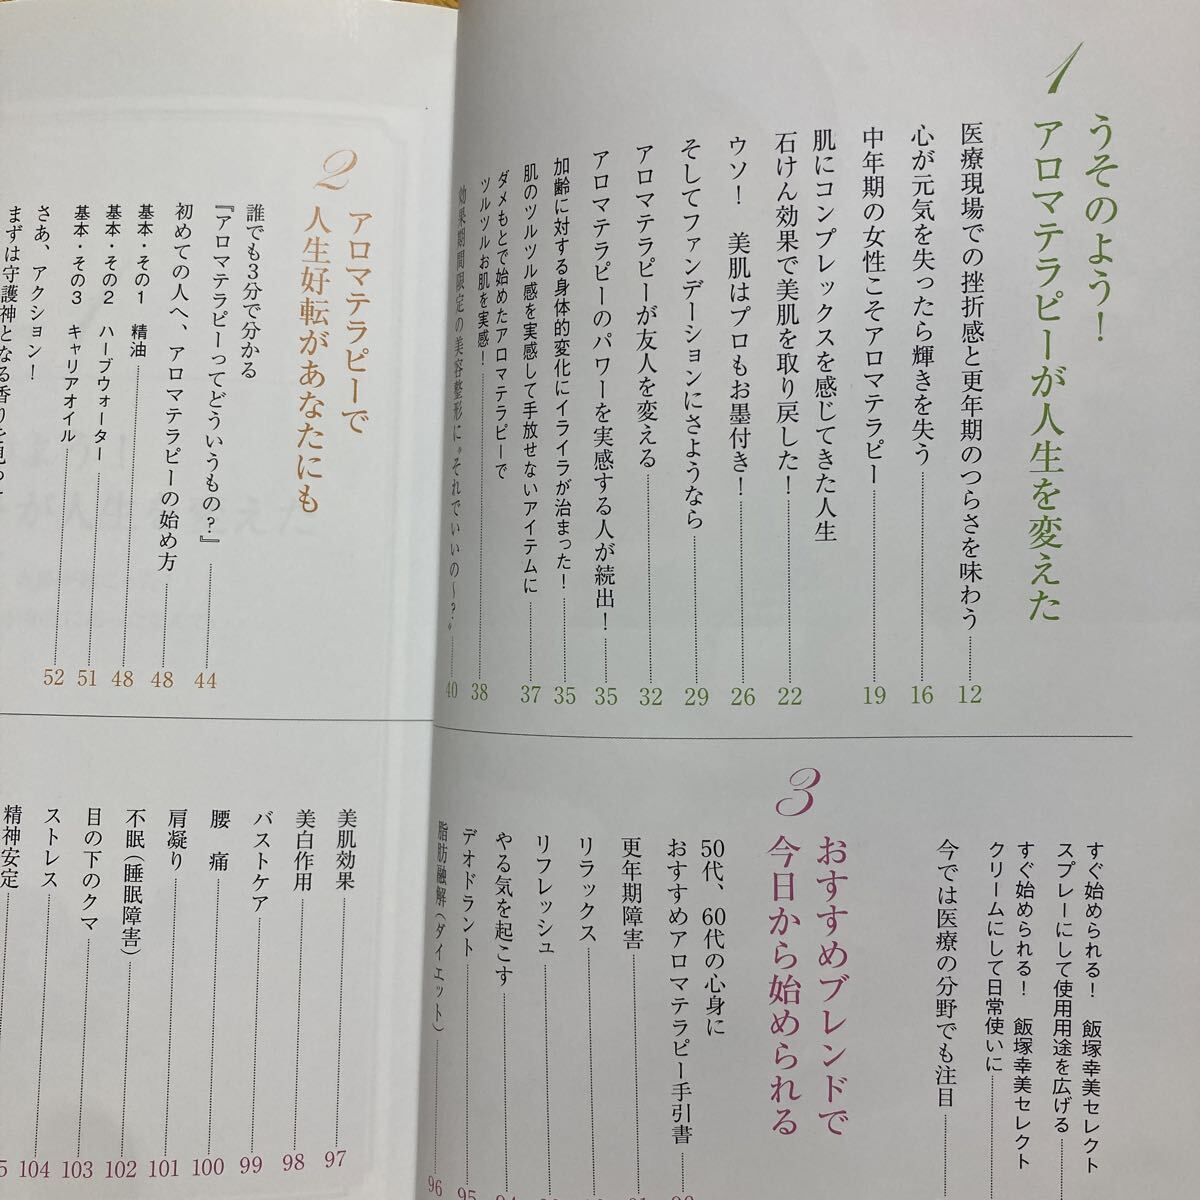 1
うそのよう！
アロマテラピーが人生を変えた
医療現場での挫折感と更年期のつらさを味わう 12
心が元気を失ったら輝きを失う 16
中年期の女性こそアロマテラピー 19
肌にコンプレックスを感じてきた人生
石けん効果で美肌を取り戻した！ 22
ウソ！　美肌はプロもお墨付き！ 26
そしてファンデーションにさようなら 29
アロマテラピーが友人を変える 32
アロマテラピーのパワーを実感する人が続出！ 35
加齢に対する身体的変化にイライラが治まった！ 35
肌のツルツル感を実感して手放せないアイテムに 37
ダメもとで始めたアロマテラピーで
ツルツルお肌を実感！ 38
効果期間限定の美容整形に“それでいいの〜？” 40
2
アロマテラピーで
人生好転があなたにも
誰でも3分で分かる
『アロマテラピーってどういうもの？』 44
初めての人へ、アロマテラピーの始め方 48
基本・その1　精油 48
基本・その2　ハーブウォーター 51
基本・その3　キャリアオイル 52
さあ、アクション！
まずは守護神となる香りを見つ
すぐ始められる！　飯塚幸美セレクト
スプレーにして使用用途を広げる
すぐ始められる！　飯塚幸美セレクト
クリームにして日常使いに
今では医療の分野でも注目
3
おすすめブレンドで
今日から始められる
50代、60代の心身に
おすすめアロマテラピー手引書
更年期障害
リラックス
リフレッシュ
やる気を起こす 94
デオドラント 95
脂肪融解（ダイエット） 96
美肌効果 97
美白作用 98
バストケア 99
腰　痛 100
肩凝り 101
不眠（睡眠障害） 102
目の下のクマ 103
ストレス 104
精神安定